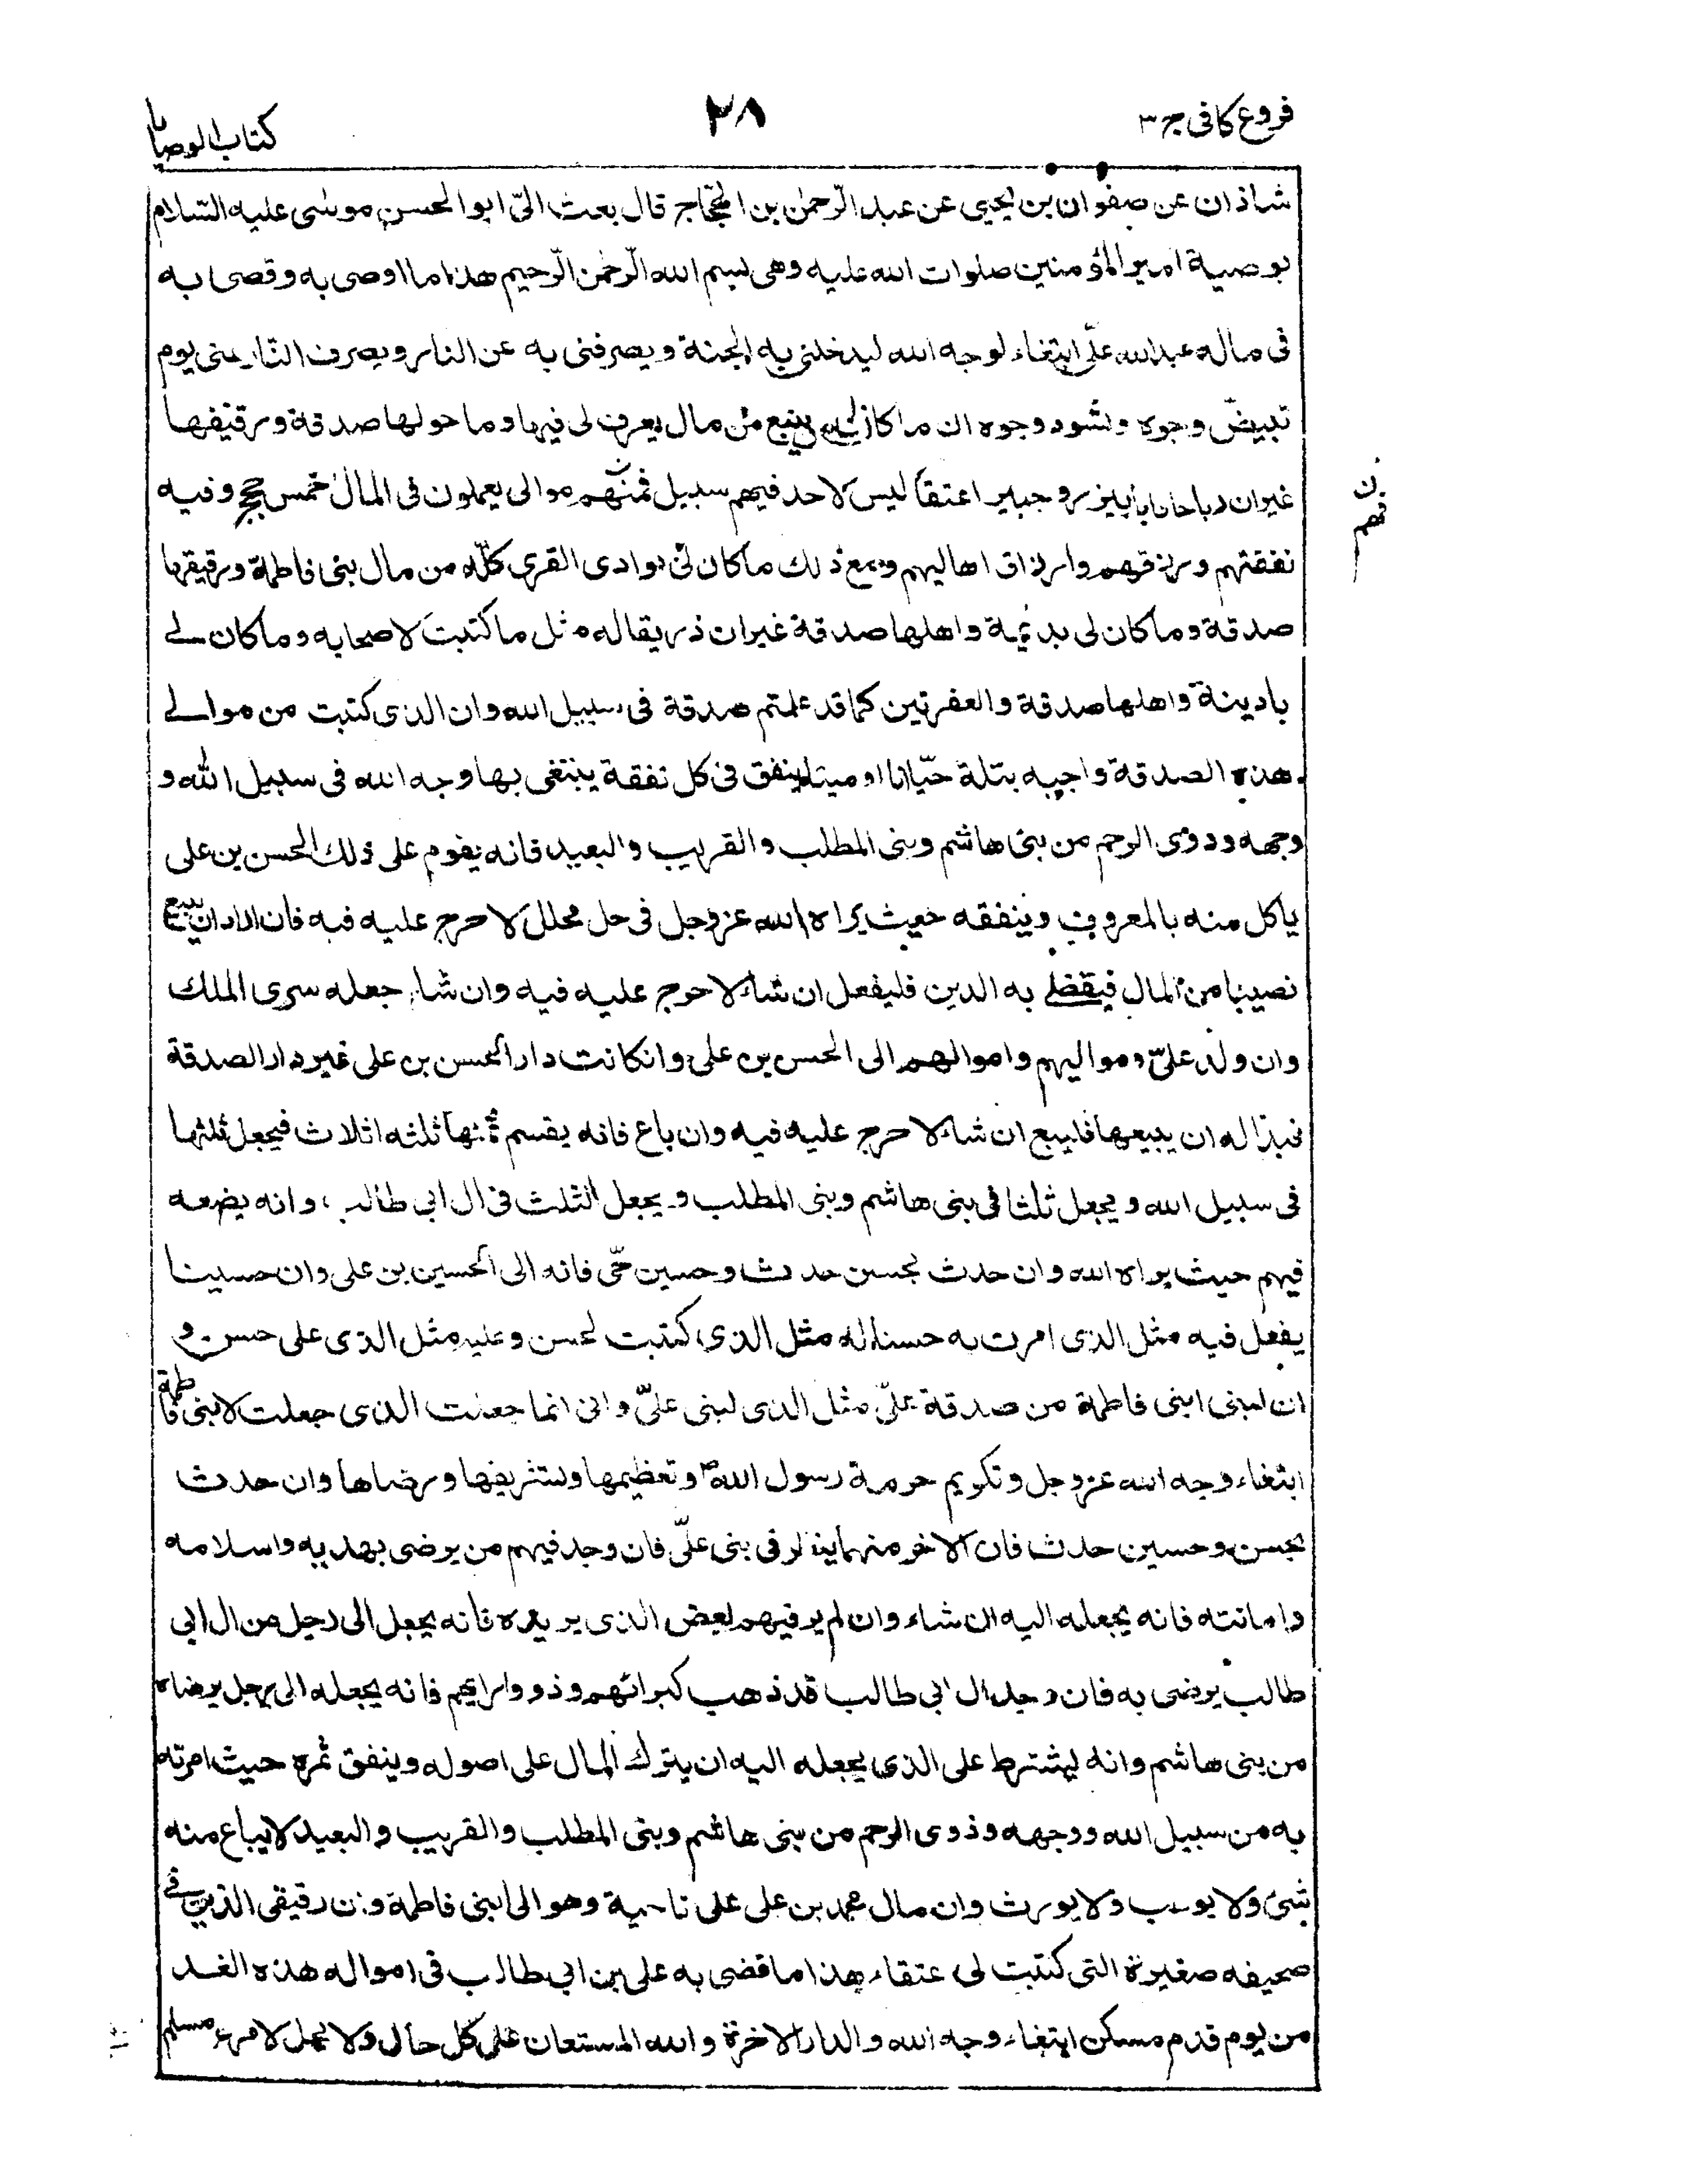 فروع كافى ج ٣
٢٨
كتاب الوصايا
شاذان عن صفوان بن يحيى عن عبد الرّحمٰن بن الحجّاج قال بعث الىّ ابو الحسن موسٰى عليه السّلام
بوصية امير المؤمنين صلوات الله عليه وهى بسم الله الرّحمٰن الرّحيم هذا ما اوصى به وقصى به
فى ماله عبد الله علىّ ابتغاء لوجه الله ليدخلنى به الجنة ويصرفنى به عن النار ويصرف النّار عنى يوم
تبيضّ وجوه وتسُود وجوه ان ما كان لى بينبع من مال يعرف لى فيها وما حولها صدقة ورقيقها
غير ان رباحا وابا نيزر وجبير اعتقاً ليس لاحد فيهم سبيل فمنهم موالى يعملون فى المال خمس حجج وفيه
ن
فهم
نفقتهم ورزقهم وارزاق اهاليهم ومع ذلك ما كان لى بوادى القرى كلّه من مال بنى فاطمة ورقيقها
صدقة وما كان لى بديمة واهلها صدقة غير ان زريقا له مثل ما كتبت لاصحابه وما كان لے
بادينة واهلها صدقة والعفرتين كما قد علمتم صدقة فى سبيل الله وان الذى كتبت من موالے
هذه الصدقة واجبه بتلة حيّا انا او ميتا ينفق فى كل نفقة يبتغى بها وجه الله فى سبيل الله و
وجهه وذوى الرحم من بنى هاشم وبنى المطلب والقريب والبعيد فانه يقوم على ذلك الحسن بن على
ياكل منه بالمعروف وينفقه حيث يراه الله عز وجل فى حل محلل لا حرج عليه فيه فان اراد ان يبيع
نصيبا من المال فيقضے به الدين فليفعل ان شاء لا حرج عليه فيه وان شاء جعله سرى الملك
وان ولد علىّ ومواليهم واموالهم الى الحسن بن على وان كانت دار الحسن بن على غير دار الصدقة
فبدا له ان يبيعها فليبع ان شاء لا حرج عليه فيه وان باع فانه يقسم ثمنها ثلثه اثلاث فيجعل ثلثها
فى سبيل الله ويجعل ثلثا فى بنى هاشم وبنى المطلب ويجعل الثلث فى ال ابى طالب، وانه يضعه
فيهم حيث يراه الله وان حدث بحسن حدث وحسين حىّ فانه الى الحسين بن على وان حسينا
يفعل فيه مثل الذى امرت به حسنا له مثل الذى كتبت لحسن وعليه مثل الذى على حسن و
ان لبنى ابنى فاطمة من صدقة علىّ مثل الذى لبنى علىّ وانى انما جعلت الذى جعلت لابنى فاطمة
ابتغاء وجه الله عز وجل وتكريم حرمة رسول الله ص وتعظيمها وتشريفها ورضاها وان حدث
بحسن وحسين حدث فان الاخر منهما ينظر فى بنى علىّ فان وجد فيهم من يرضى بهديه واسلامه
وامانته فانه يجعله اليه ان شاء وان لم ير فيهم بعض الذى يريده فانه يجعل الى رجل من ال ابى
طالب يرضى به فان وجد ال ابى طالب قد ذهب كبرائهم وذوو ارايهم فانه يجعله الى رجل يرضاه
من بنى هاشم وانه يشترط على الذى يجعله اليه ان يترك المال على اصوله وينفق ثمره حيث امرته
به من سبيل الله ووجهه وذوى الرحم من بنى هاشم وبنى المطلب والقريب والبعيد لا يباع منه
شئ ولا يوهب ولا يورث وان مال محمد بن على على ناحية وهو الى ابنى فاطمة وان رقيقى الذين فى
صحيفه صغيرة التى كتبت لى عتقاء هذا ما قضى به على بن ابى طالب فى امواله هذه الغد
من يوم قدم مسكن ابتغاء وجه الله والدار الاخرة والله المستعان على كل حال ولا يحل لامرء مسلم